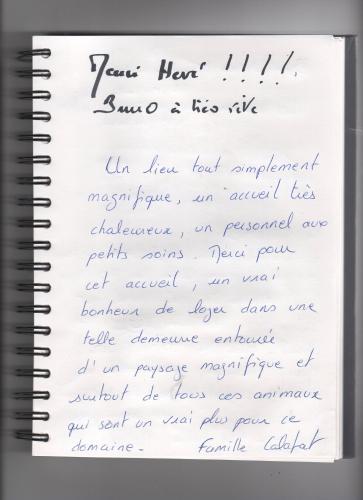 Merci Hervé !!!!.
Bruno à très vite
Un lieu tout simplement
magnifique, un accueil très
chaleureux, un personnel aux
petits soins. Merci pour
cet accueil, un vrai
bonheur de loger dans une
telle demeure entourée
d'un paysage magnifique et
surtout de tous ces animaux
qui sont un vrai plus pour ce
domaine. Famille Calafat